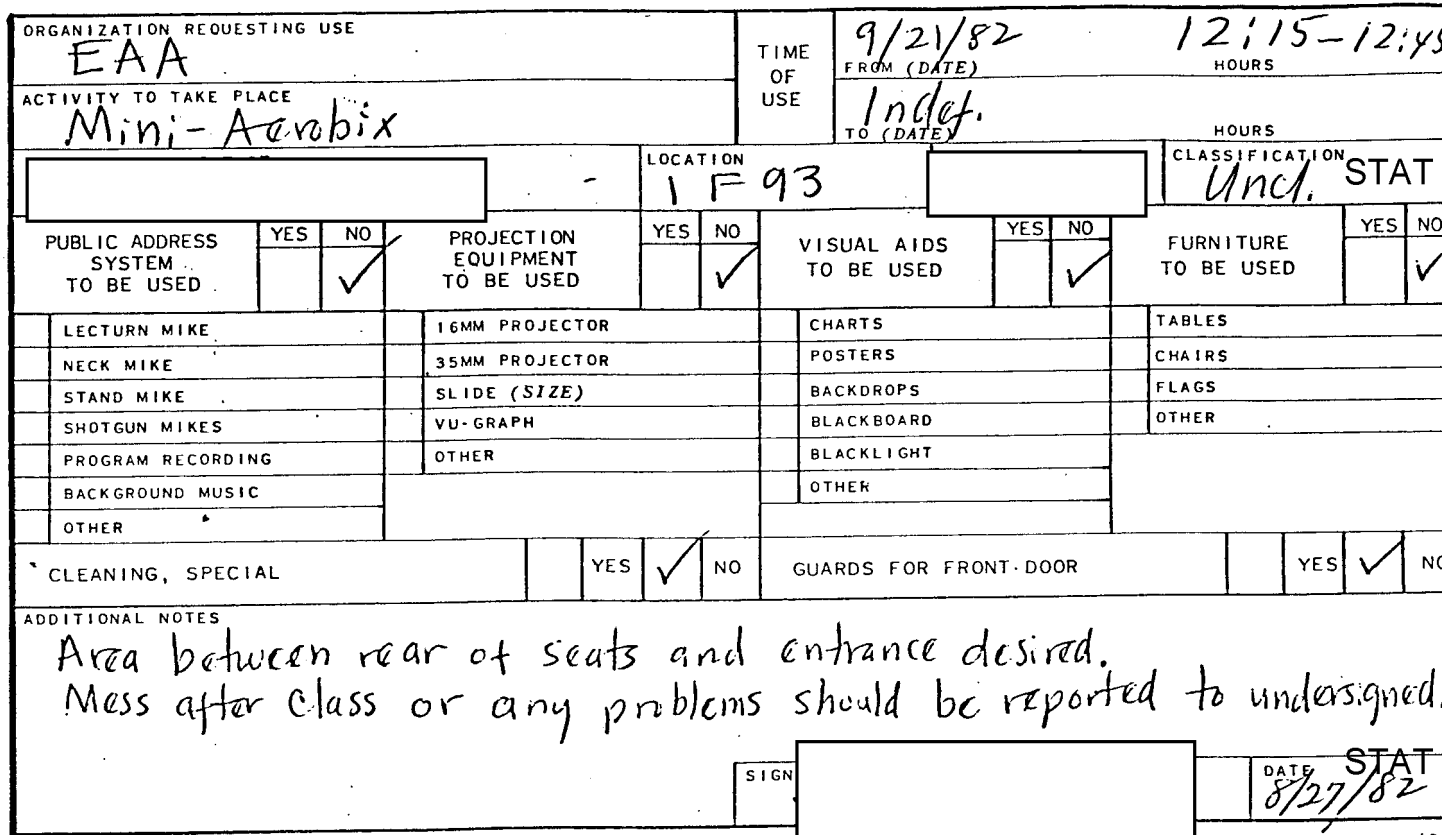 ORGANIZATION REQUESTING USE
EAA
TIME OF USE
9/21/82 12:15-12:45
FROM (DATE) HOURS
ACTIVITY TO TAKE PLACE
Mini-Aerobix
Indef.
TO (DATE) HOURS
LOCATION
1 F 93
CLASSIFICATION
Uncl. STAT
PUBLIC ADDRESS SYSTEM TO BE USED YES NO ✓
PROJECTION EQUIPMENT TO BE USED YES NO ✓
VISUAL AIDS TO BE USED YES NO ✓
FURNITURE TO BE USED YES NO ✓
LECTURN MIKE
NECK MIKE
STAND MIKE
SHOTGUN MIKES
PROGRAM RECORDING
BACKGROUND MUSIC
OTHER
16MM PROJECTOR
35MM PROJECTOR
SLIDE (SIZE)
VU-GRAPH
OTHER
CHARTS
POSTERS
BACKDROPS
BLACKBOARD
BLACKLIGHT
OTHER
TABLES
CHAIRS
FLAGS
OTHER
CLEANING, SPECIAL YES ✓ NO
GUARDS FOR FRONT DOOR YES ✓ NO
ADDITIONAL NOTES
Area between rear of seats and entrance desired.
Mess after class or any problems should be reported to undersigned.
SIGN
DATE STAT
8/27/82